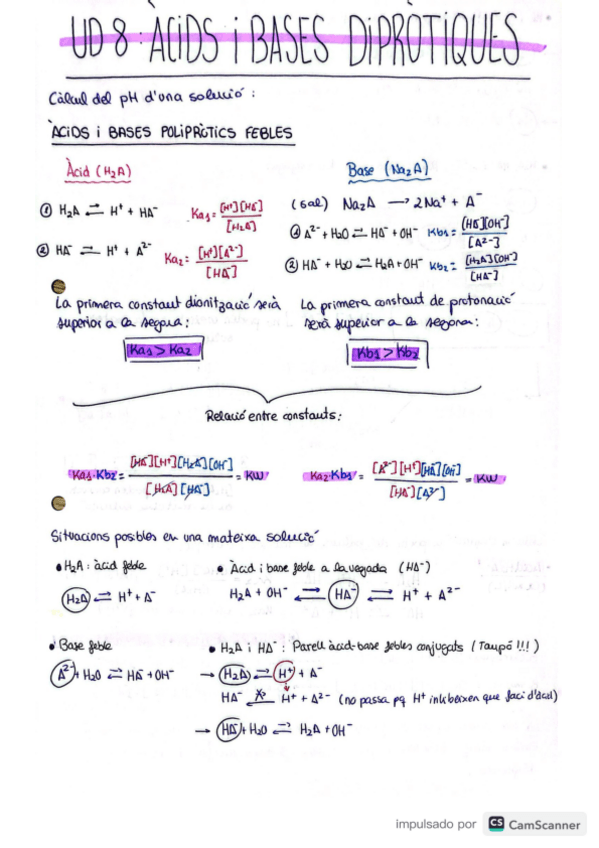 UD 8: ÀCIDS i BASES DIPRÒTIQUES
Càlcul del pH d'una solució:
ÀCIDS i BASES POLIPRÒTICS FEBLES
Àcid (H₂A)
① H₂A ⇌ H⁺ + HA⁻ Ka₁ = [H⁺][HA⁻] / [H₂A]
② HA⁻ ⇌ H⁺ + A²⁻ Ka₂ = [H⁺][A²⁻] / [HA⁻]
La primera constant d'ionització serà
superior a la segona:
Ka₁ > Ka₂
Base (Na₂A)
(sal) Na₂A → 2Na⁺ + A⁻
① A²⁻ + H₂O ⇌ HA⁻ + OH⁻ Kb₁ = [HA⁻][OH⁻] / [A²⁻]
② HA⁻ + H₂O ⇌ H₂A + OH⁻ Kb₂ = [H₂A][OH⁻] / [HA⁻]
La primera constant de protonació
serà superior a la segona:
Kb₁ > Kb₂
Relació entre constants:
Ka₁·Kb₂ = [HA⁻][H⁺][H₂A][OH⁻] / [H₂A][HA⁻] = KW
Ka₂·Kb₁ = [A²⁻][H⁺][HA⁻][OH⁻] / [HA⁻][A²⁻] = KW
Situacions posibles en una mateixa solució
• H₂A: àcid feble
H₂A ⇌ H⁺ + A⁻
• Àcid i base feble a la vegada (HA⁻)
H₂A + OH⁻ ⇌ HA⁻ ⇌ H⁺ + A²⁻
• Base feble
A²⁻ + H₂O ⇌ HA⁻ + OH⁻
• H₂A i HA⁻: Parell àcid-base febles conjugats (Tampó!!!)
→ H₂A ⇌ H⁺ + A⁻
HA⁻ ⇌ H⁺ + A²⁻ (no passa pq H⁺ inhibeixen que faci d'àcid)
→ HA⁻ + H₂O ⇌ H₂A + OH⁻
impulsado por CS CamScanner